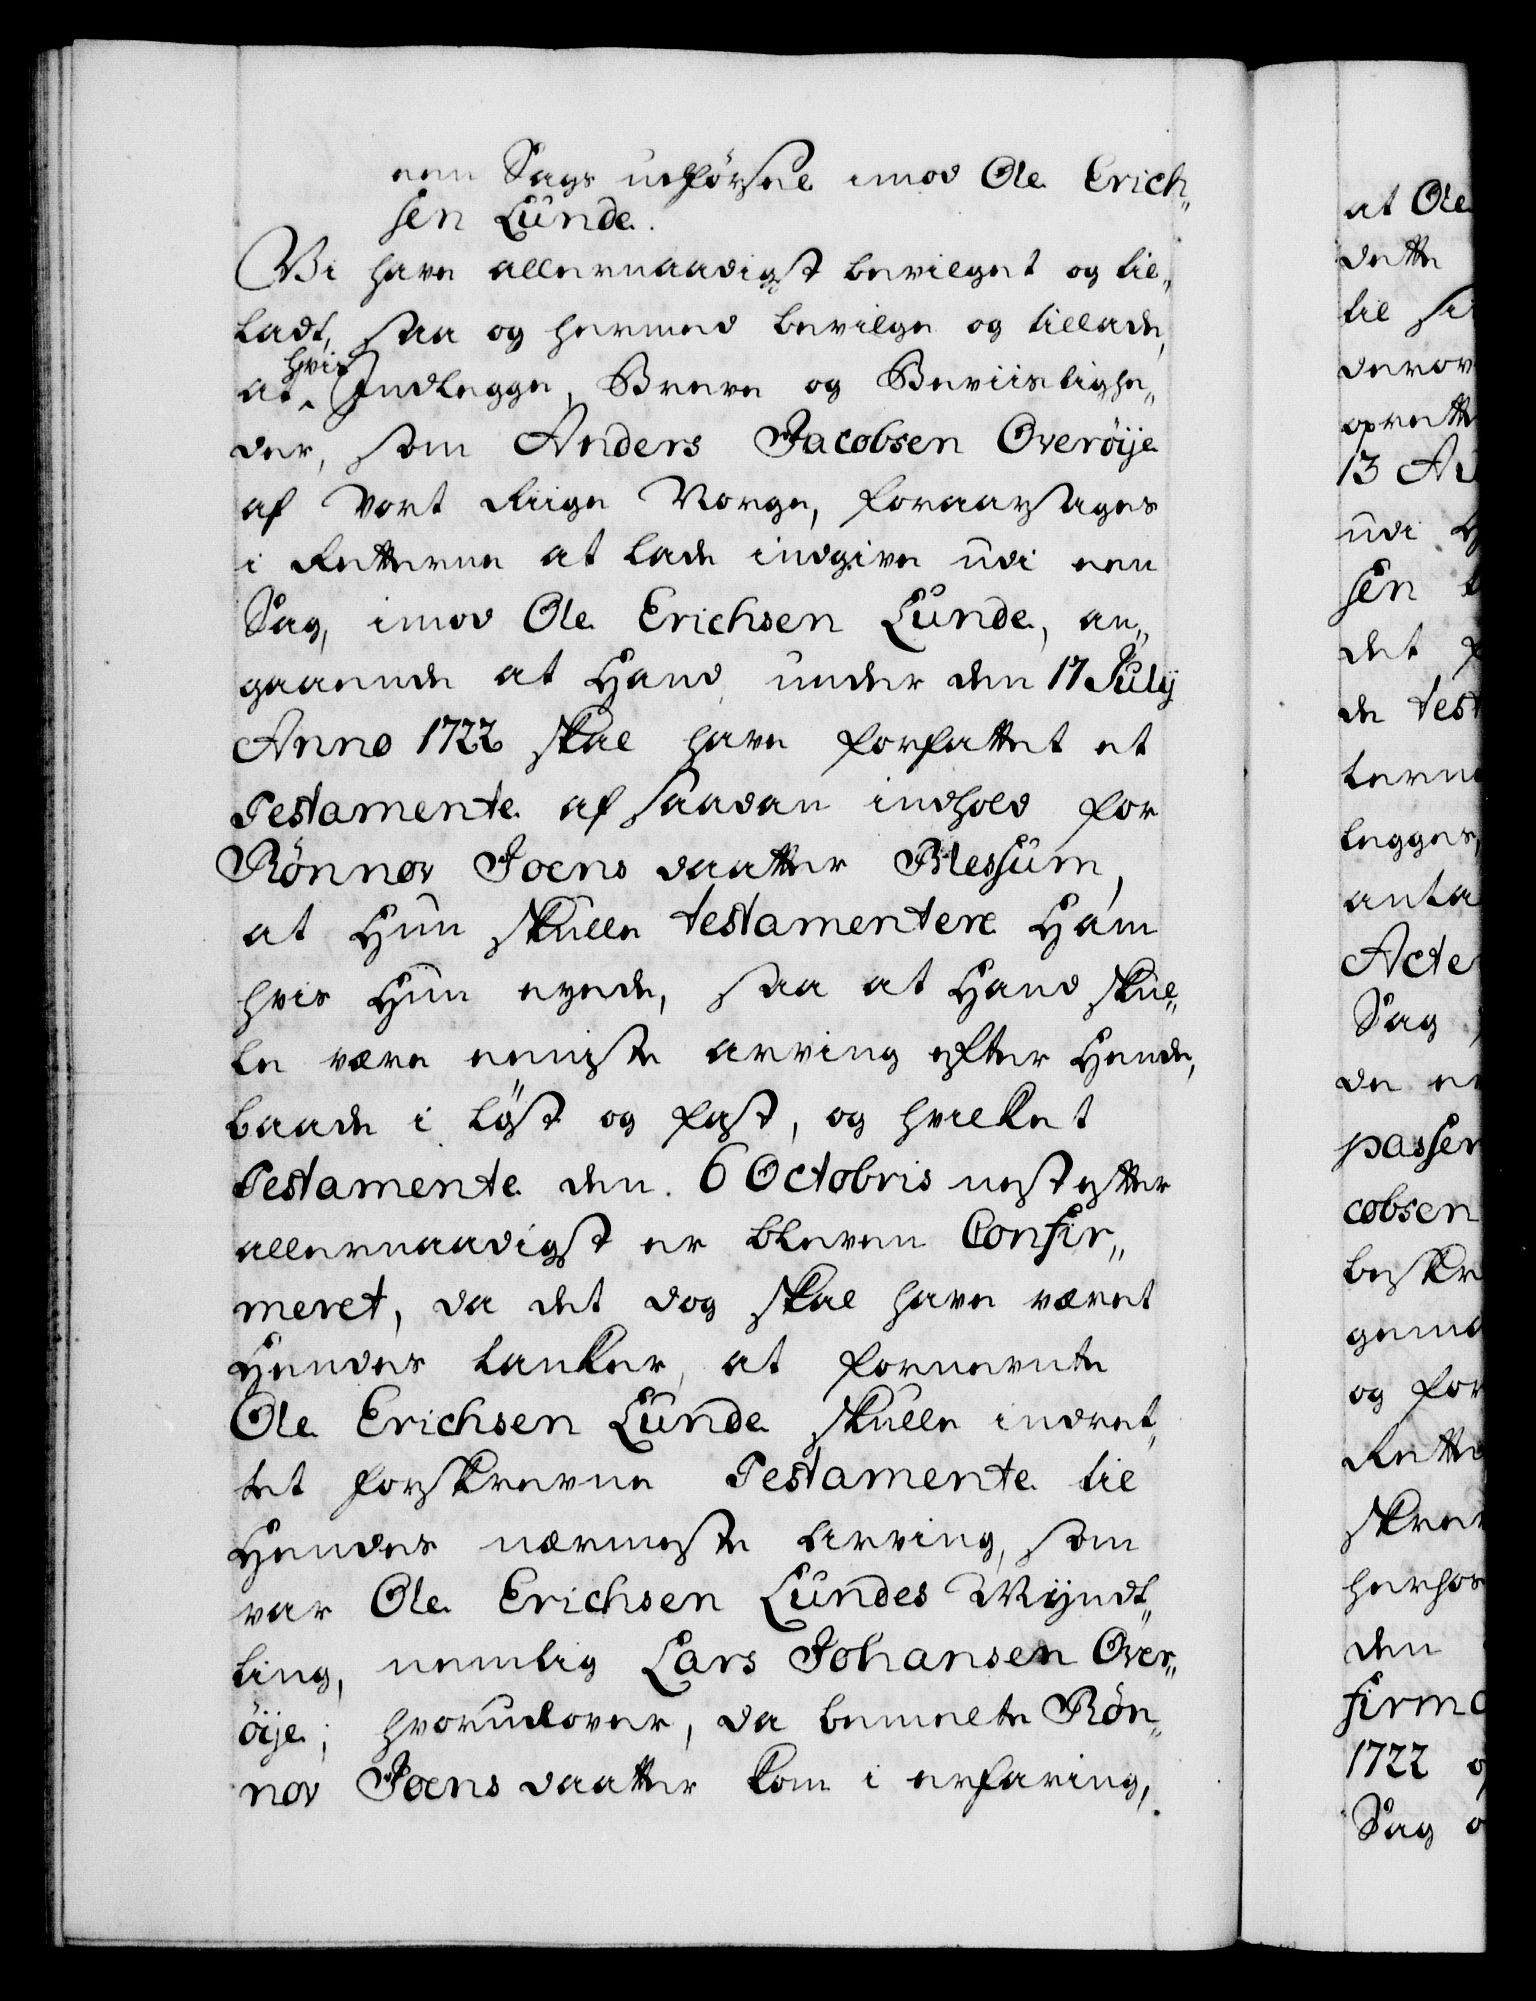 een Sags udførsel imod Ole Erich„
sen Lunde.
Vi have allernaadigst bevilget og til„
ladt, saa og hermed bevilge og tillade,
at hvis Indlegge, Breve og Beviislighe„
der, som Anders Jacobsen Overøije
af Vort Riige Norge, foraarsages
i Retterne at lade indgive udi een
Sag, imod Ole Erichsen Lunde, an„
gaaende at Hand under den 17 Julij
Anno 1722 skal have forfattet et
Testamente af saadan indhold for
Rønnov Joens daatter Messum,
at Hun skulle testamentere Ham
hvis Hun eyede, saa at Hand skul„
le være eeniste arving efter Hende,
baade i løst og fast, og hvilket
Testamente den 6 Octobris nest efter
allernaadigst er bleven Confir„
meret, da det dog skal have været
Hendes tanker, at fornevnte
Ole Erichsen Lunde skulle indret„
tet forskrevne Testamente til
Hendes nærmeste Arving, som
var Ole Erichsen Lundes Myndt„
ling, nemlig Lars Johansen Over„
øije; hvorudover, da bemelte Røn„
nov Joens daatter kom i erfaring,
at Ole
dette
til
13
udi
sen
det
de
legges,
Acte
Sag
de
passer
cobsen
og for
den
firme
1722
Sag